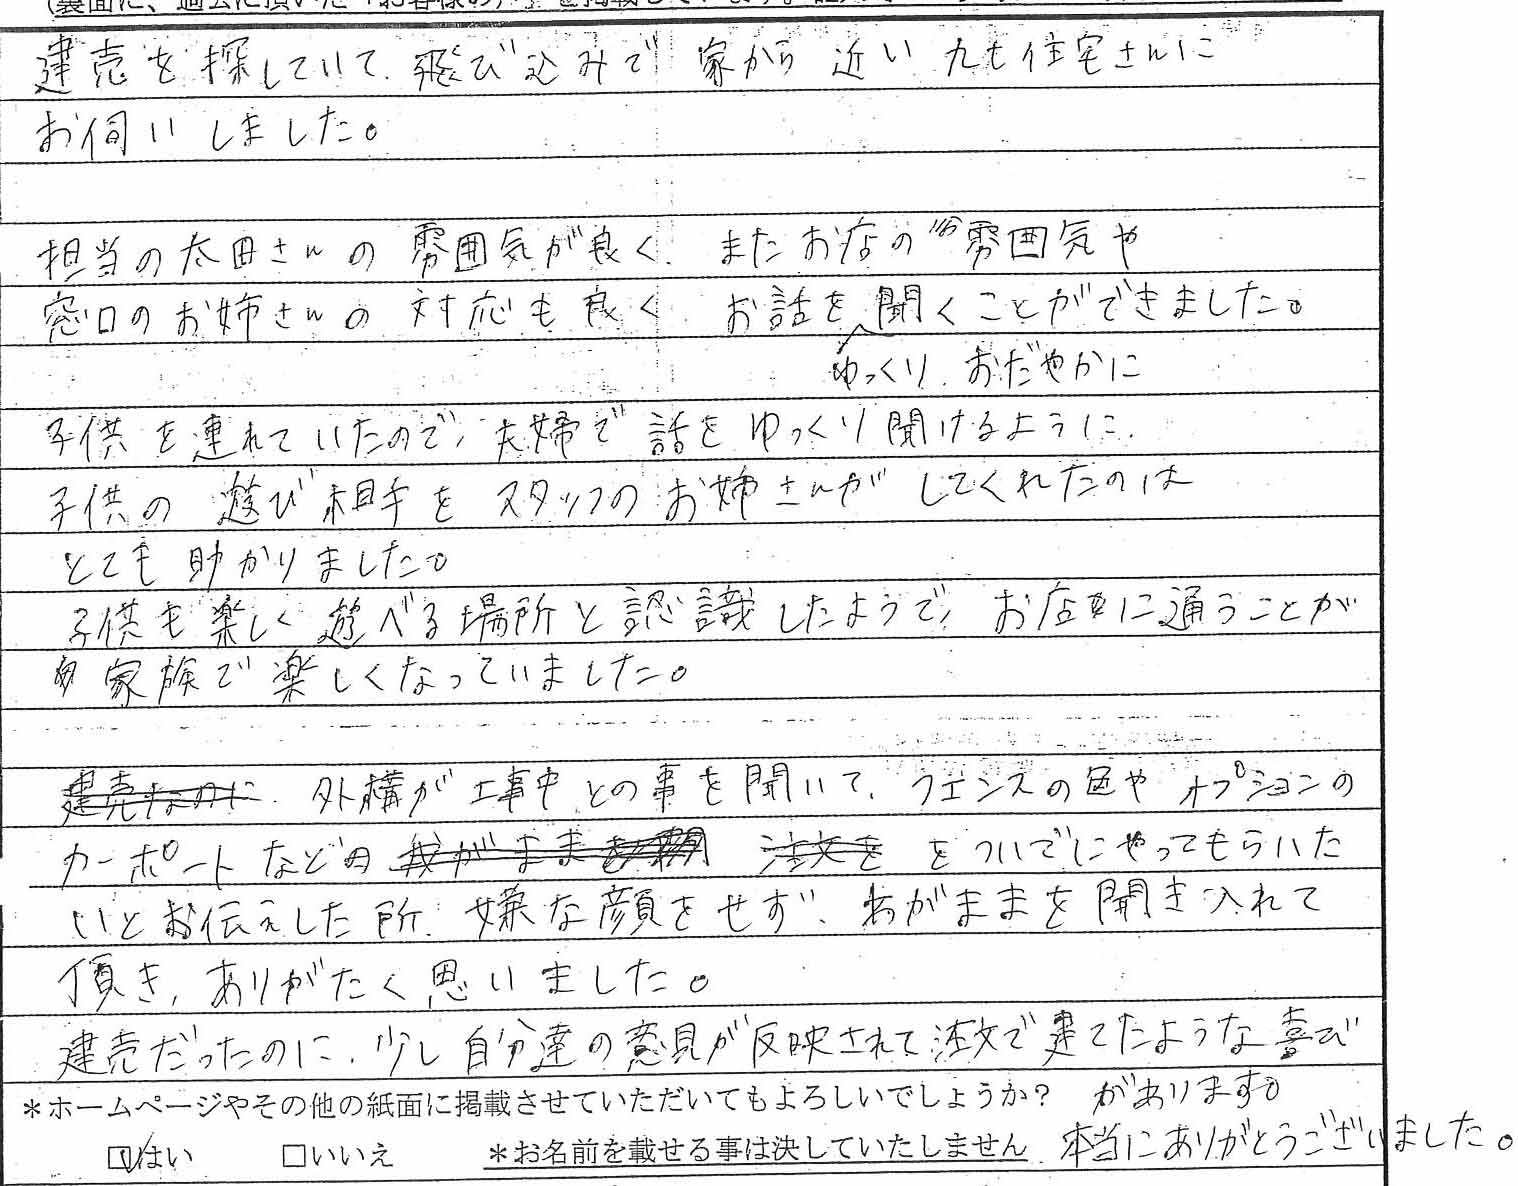 (裏面に、過去に頂いた「お客様の
建売を探していて、飛び込みで 家から 近い 九七住宅さんに
お伺いしました。
担当の太田さんの 雰囲気が良く、またお店の雰囲気や
窓口のお姉さんの 対応も良く お話を聞くことができました。
ゆっくり、おだやかに
子供を連れていたので、夫婦で話をゆっくり聞けるように、
子供の 遊び相手を スタッフのお姉さんが してくれたのは
とても 助かりました。
子供も楽しく遊べる場所と認識したようで、お店に通うことが
家族で楽しくなっていました。
建売なのに、外構が工事中との事を聞いて、フェンスの色や オプションの
カーポートなどの 我がまま 注文を をついでにやってもらいた
いとお伝えした所、嫌な顔をせず、わがままを聞き入れて
頂き、ありがたく思いました。
建売だったのに、少し自分達の意見が反映されて注文で建てたような喜び
があります。
*ホームページやその他の紙面に掲載させていただいてもよろしいでしょうか?
☑はい □いいえ *お名前を載せる事は決していたしません
本当にありがとうございました。